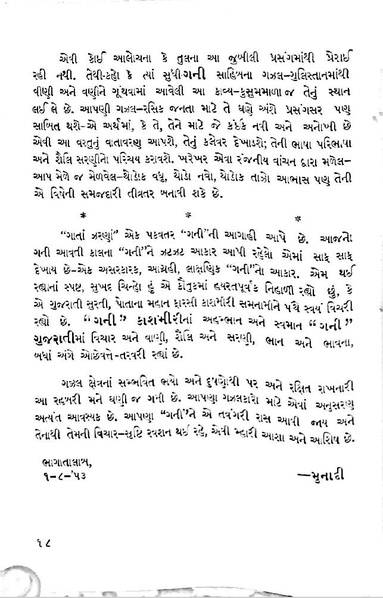 એવી કોઈ આલોચના કે તુલના આ જુબીલી પ્રસંગમાંથી પ્રેરાઈ
રહી નથી. તેથી-કહો કે ત્યાં સુધી ગની સાહિબના ગઝલ-ગુલિસ્તાનમાંથી
વીણી અને વણીને ગૂંથવામાં આવેલી આ કાવ્ય-કુસુમમાળા જ તેનું સ્થાન
લઈ લે છે. આપણી ગઝલ-રસિક જનતા માટે તે ઘણે અંશે પ્રસંગસર પણ
સાબિત થશે-એ અર્થમાં, કે તે, તેને માટે જે કંઈક નવી અને અનોખી છે
એવી આ વસ્તુનું વાતાવરણ આપશે, તેનું કલેવર દેખાડશે; તેની ભાષા પરિભાષા
અને શૈલિ સરણીનો પરિચય કરાવશે. ખરેખર એવા રંજનીય વાંચન દ્વારા મળેલ-
આપ મેળે જ મેળવેલ-થોડોક વધુ, થોડો નવો, થોડોક તાજો આભાસ પણ તેની
એ વિષેની સમજદારી તીવ્રતર બનાવી શકે છે.
* * *
"ગાતાં ઝરણાં" એક પકવતર "ગની"ની આગાહી આપે છે. આજનો
ગની આવતી કાલના "ગની"ને ઝટઝટ આકાર આપી રહેલો એમાં સાફ સાફ
દેખાય છે-એક અસરકારક, આગ્રહી, લાક્ષણિક "ગની"નો આકાર. એમ થઈ
રહ્યાનાં સ્પષ્ટ, સુખદ ચિન્હો હું એ કૌતુકમાં હસરતપૂર્વક નિહાળી રહ્યો છું, કે
એ ગુજરાતી સુરતી, પોતાના મહાન ફારસી કાશ્મીરી સમનામીને પંથે સ્વયં વિચરી
રહ્યો છે. "ગની" કાશ્મીરીનાં અહમ્ભાન અને સ્વમાન "ગની"
ગુજરાતીમાં વિચાર અને વાણી, શૈલિ અને સરણી, ભાન અને ભાવના,
બધાં અંગે ઓછેવત્તે-તરવરી રહ્યા છે.
ગઝલ ક્ષેત્રનાં સંભવિત ભયો અને દુષણોથી પર અને રક્ષિત રાખનારી
આ રહબરી મને ઘણી જ ગમી છે. આપણા ગઝલકારો માટે એવાં અનુસરણ
અત્યંત આવશ્યક છે. આપણા "ગની"ને એ તવંગરી રાસ આવી જાય અને
તેનાથી તેમની વિચાર-સૃષ્ટિ રોશન થઈ રહે, એવી મ્હારી આશા અને આશિષ છે.
ભાગાતાલાવ,
૧-૮-'૫૩
—મુનાદી
૧૮